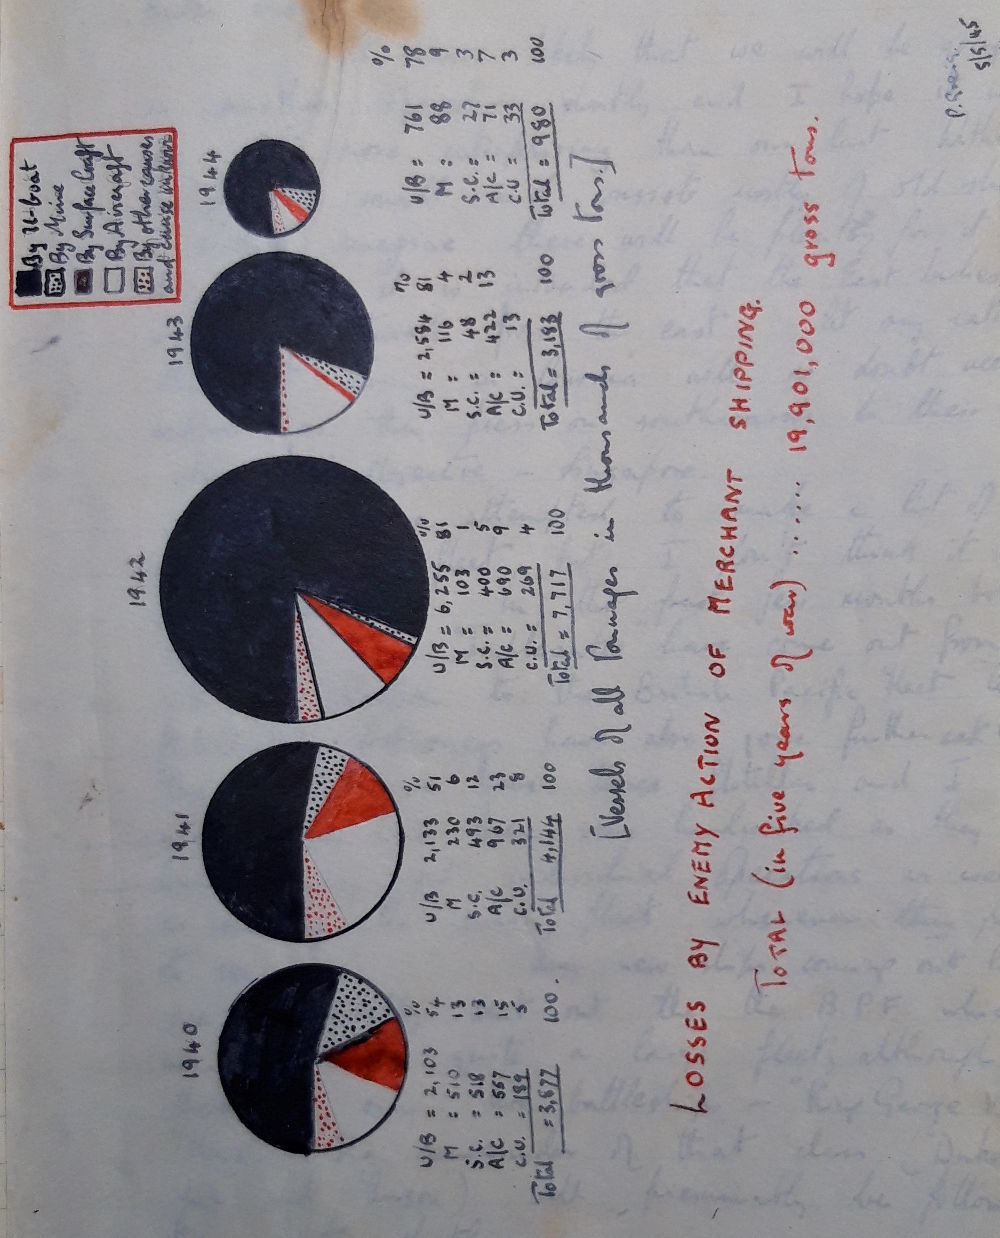 By U-boat
By Mine
By Surface Craft
By Aircraft
By other causes
and cause unknown
1940
%
U/B = 2,103 54
M = 510 13
S.C. = 518 13
A/C = 557 15
C.U. = 189 5
Total = 3,877 100.
1941
%
U/B 2,133 51
M 230 6
S.C. 493 12
A/C 967 23
C.U. 321 8
Total 4,144 100
1942
%
U/B = 6,255 81
M = 103 1
S.C. = 400 5
A/C = 690 9
C.U. = 269 4
Total = 7,717 100
1943
%
U/B = 2,584 81
M = 116 4
S.C. = 48 2
A/C = 422 13
C.U. = 13
Total = 3,183 100
1944
%
U/B = 761 78
M = 88 9
S.C. = 27 3
A/C = 71 7
C.U = 33 3
Total = 980 100
[Vessels of all Tonnages in thousands of gross tons.]
LOSSES BY ENEMY ACTION OF MERCHANT SHIPPING.
TOTAL (in five years of war) ...... 19,901,000 gross tons.
5/5/45